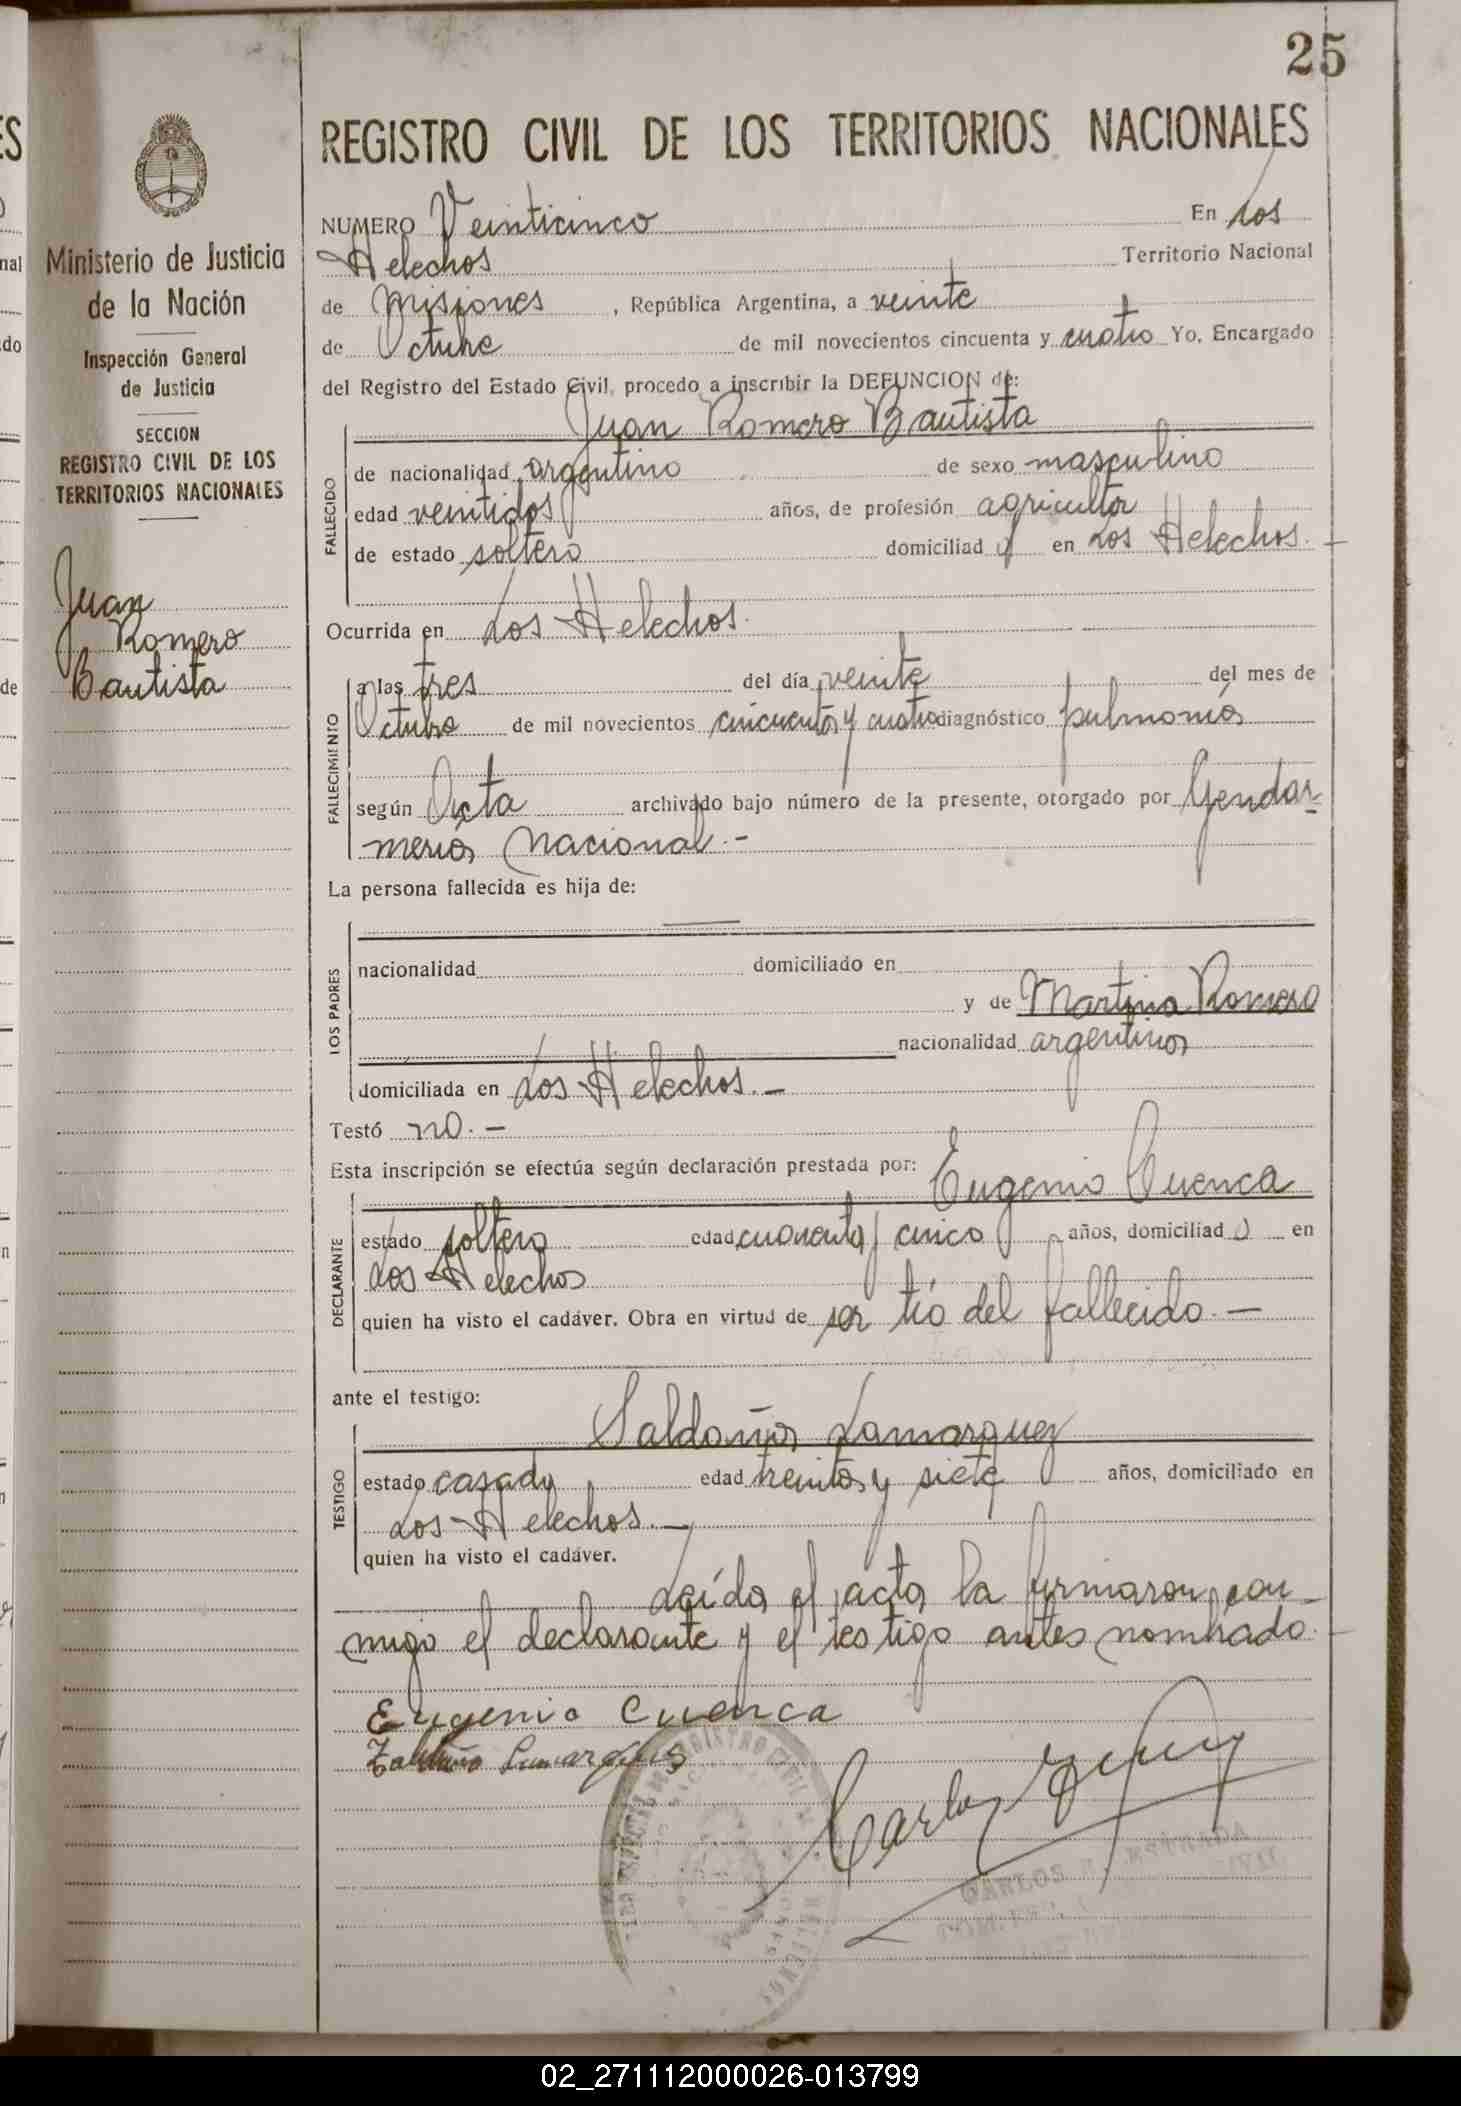 25
REGISTRO CIVIL DE LOS TERRITORIOS NACIONALES
Ministerio de Justicia
de la Nación
Inspección General
de Justicia
SECCION
REGISTRO CIVIL DE LOS
TERRITORIOS NACIONALES
Juan
Romero
Bautista
NUMERO Veinticinco En Los
Helechos Territorio Nacional
de Misiones, República Argentina, a veinte
de Octubre de mil novecientos cincuenta y cuatro Yo, Encargado
del Registro del Estado Civil, procedo a inscribir la DEFUNCION de:
Juan Romero Bautista
FALLECIDO
de nacionalidad argentino de sexo masculino
edad veintidos años, de profesión agricultor
de estado soltero domiciliado en Los Helechos.
Ocurrida en Los Helechos.
FALLECIMIENTO
a las tres del día veinte del mes de
Octubre de mil novecientos cincuenta y cuatro diagnóstico pulmonía
según Acta archivado bajo número de la presente, otorgado por Gendar-
mería Nacional.-
La persona fallecida es hija de:
LOS PADRES
nacionalidad domiciliado en
y de Martina Romero
nacionalidad argentina
domiciliada en Los Helechos.-
Testó no.-
Esta inscripción se efectúa según declaración prestada por: Eugenio Cuenca
DECLARANTE
estado soltero edad cuarenta y cinco años, domiciliado en
Los Helechos
quien ha visto el cadáver. Obra en virtud de ser tío del fallecido.-
ante el testigo:
Saldaña Lamarquez
TESTIGO
estado casado edad treinta y siete años, domiciliado en
Los Helechos.-
quien ha visto el cadáver.
Leída el acta, la firmaron con-
migo el declarante y el testigo antes nombrado.-
Eugenio Cuenca
02_271112000026-013799